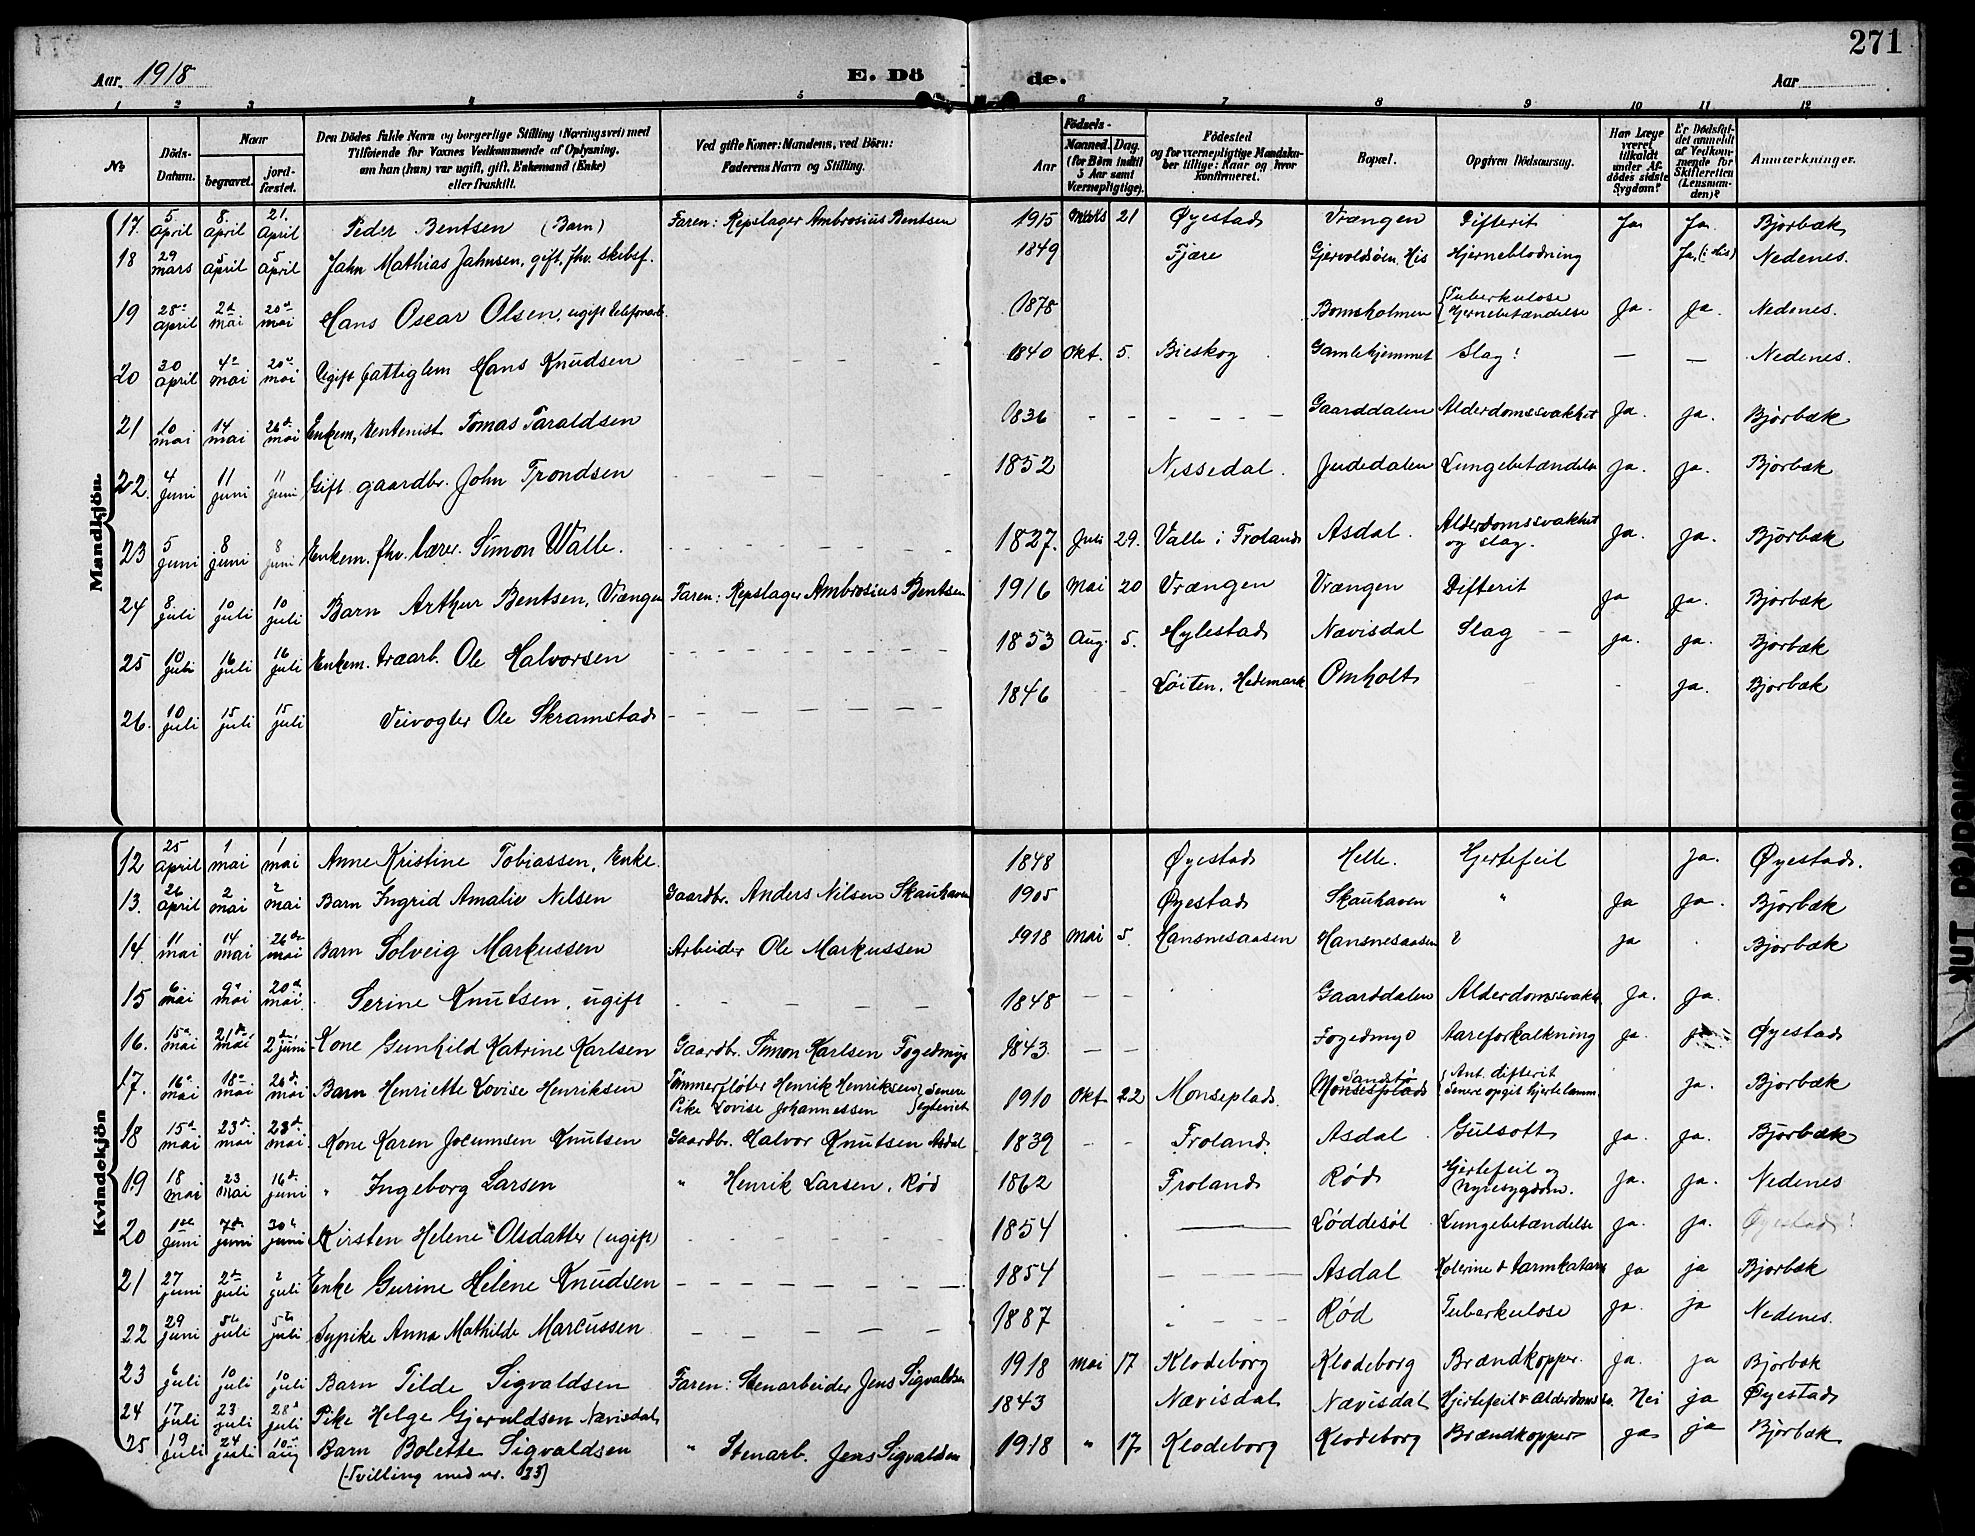 271
Aar 1918 E. Dö de. Aar
1 2 3 4 5 6 7 8 9 10 11 12
No
Döds-Datum.
Naar
begravet.
jordfæstet.
Den Dödes fulde Navn og borgerlige Stilling (Næringsvei) med
Tilføiende for Voxnes Vedkommende af Oplysning,
om han (hun) var ugift, gift, Enkemand (Enke)
eller fraskilt.
Ved gifte Koner: Mandens, ved Börn:
Faderens Navn og Stilling.
Födsels-
Aar
Maaned. Dag.
(for Börn indtil
5 Aar samt
Værnepligtige).
Födested
og for værnepligtige Mandskaber tillige: Naar og hvor
konfirmeret.
Bopæl.
Opgiven Dödsaarsag.
Har Læge
været
tilkaldt
under Afdödes sidste
Sygdom?
Er Dödsfaldet anmeldt
af Vedkommende for
Skifteretten
(Lensmanden)?
Anmærkninger.
Mandkjön.
17. 5 april 8. april 21. April Peder Bentsen (Barn) Faren: Repslager Ambrosius Bentsen 1915 Mars 21 Øyestad Vrængen Difterit Ja Ja Bjorbæk
18 29 mars 5 april 5 april Jahn Mathias Jahnsen, gift, fhv. skibsf. 1849 Fjære Gjervoldsøen, His Hjerneblødning Ja (: His) Nedenes.
19 28de April 2d mai 20de mai Hans Oscar Olsen, ugift telefonarb. 1878 Bomsholmen {Tuberkulose Hjernebetændelse Ja. Ja. Nedenes.
20 30 april 4de mai 20de mai Ugift fattiglem Hans Knudsen - - - - 1840 Okt. 5. Bieskog Gamlehjemmet Slag! — — Nedenes.
21 10 mai 14 mai 26de mai Enkem, rentenist Tomas Taraldsen 1836 - - - - - Gaarddalen Alderdomssvakhet Ja. ja. Bjorbæk
22. 4 juni 11 juni 11 juni Gift gaardbr. John Trondsen - - - - 1852 Nissedal. Judedalen Lungebetændelse ja. ja. Bjorbæk
23 5 juni 8 juni 8 juni Enkem. fhv. lærer. Simon Walle. - - - - 1827. Juli 29. Valle i Froland Asdal. Alderdomssvakhet og slag. ja. ja. Bjørbæk
24 8 juli 10 juli 10 juli Barn Arthur Bentsen, Vrængen Faren: Repslager Ambrosius Bentsen 1916 Mai 20 Vrængen Vrængen Difterit ja ja. Bjorbæk
25 10 juli 16 juli 16 juli Enkem. traarb. Ole Halvorsen - - - - 1853 Aug. 5. Hylestad Nævisdal Slag - - ja. ja. Bjorbæk
26. 10 juli 15 juli 15 juli Veivogter Ole Skramstad - - - - 1846 - Løiten, Hedemark Omholt ja. Bjorbæk
Kvindekjön
12 25 april 1 mai 1 mai Anne Kristine Tobiassen, Enke. 1848 Øyestad Helle. Hjertefeil ja. Øyestad.
13. 26 April 2 mai 2 mai Barn Ingrid Amalie Nilsen Gaardbr. Anders Nilsen Skauhaven 1905 Øyestad Skauhaven " ja ja. Bjorbæk
14. 11 mai 14 mai 26de mai Barn Solveig Markussen Arbeider Ole Markussen 1918 Mai 5. Hansnesaasen Hansnesaasen ? ja Bjorbæk
15 6 mai 9d mai 20d mai Serine Knutsen, ugift - - - - 1848 - - Gaarddalen Alderdomssvakh. ja. ja.
16. 15d mai 21de mai 2de juni Kone Gunhild Katrine Karlsen Gaardbr. Simon Karlsen Fogedmyr 1843. - - Fogedmyr Aareforkalkning ja. ja Øyestad
17. 16d mai 18d mai 26de mai Barn Henriette Lovise Henriksen Tømmerfløter Henrik Henriksen Pike Lovise Johannessen }senere egteviet 1910 Okt 22 Monseplads. Sandstø Monseplads {Ant. difterit Senere opgit hjertelamm. ja. Bjorbæk
18 15d mai 23de mai 23de mai Kone Karen Jocumsen Knutsen Gaardbr. Halvor Knutsen Asdal 1839 - - Froland. Asdal Gulsott ja. ja. Bjorbæk
19 18 mai 23 mai 16de juni " Ingeborg Larsen " Henrik Larsen, Rød 1862 Froland Rød Hjertefeil og Nyresygdom. ja. ja. Nedenes
20 1ste juni 7de juni 30te juni Kirsten Helene Olsdatter (ugift) - - - - 1854 — Løddesøl Lungebetændelse ja. ja. Øyestad!
21 27 juni 2de juli 2 juli Enke Gurine Helene Knudsen - - - - 1854 - - - Asdal Kolerine & tarmkatarr ja ja Bjorbæk
22 29 juni 5te juli 5te juli Sypike Anna Mathilde Marcussen - - - - 1887 - - - Rød Tuberkulose ja. ja Nedenes.
23 6 juli 10 juli 10 juli Barn Tilde Sigvaldsen Faren: Stenarbeider Jens Sigvaldsen 1918 Mai 17 Klodeborg Klodeborg Brændkopper. ja. ja Bjorbæk
24 17 juli 23 juli 28d juli Pike Helge Gjeruldsen Nævisdal 1843 Nævisdal Nævisdal Hjertefeil & Alderdomssv. Nei ja Øyestad
25 19 juli 24 juli 10de aug Barn Bolette Sigvaldsen " Stenarb. Jens Sigvaldsen 1918 " 17 Klodeborg Klodeborg Brændkopper ja ja Bjorbæk
(Tvilling med nr. 23)